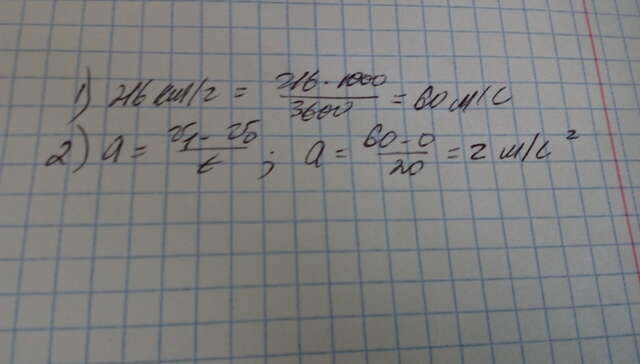 1) 216 км/г = 216 · 1000 / 3600 = 60 м/с
2) a = v₁ - v₀ / t ; a = 60 - 0 / 20 = 2 м/с²